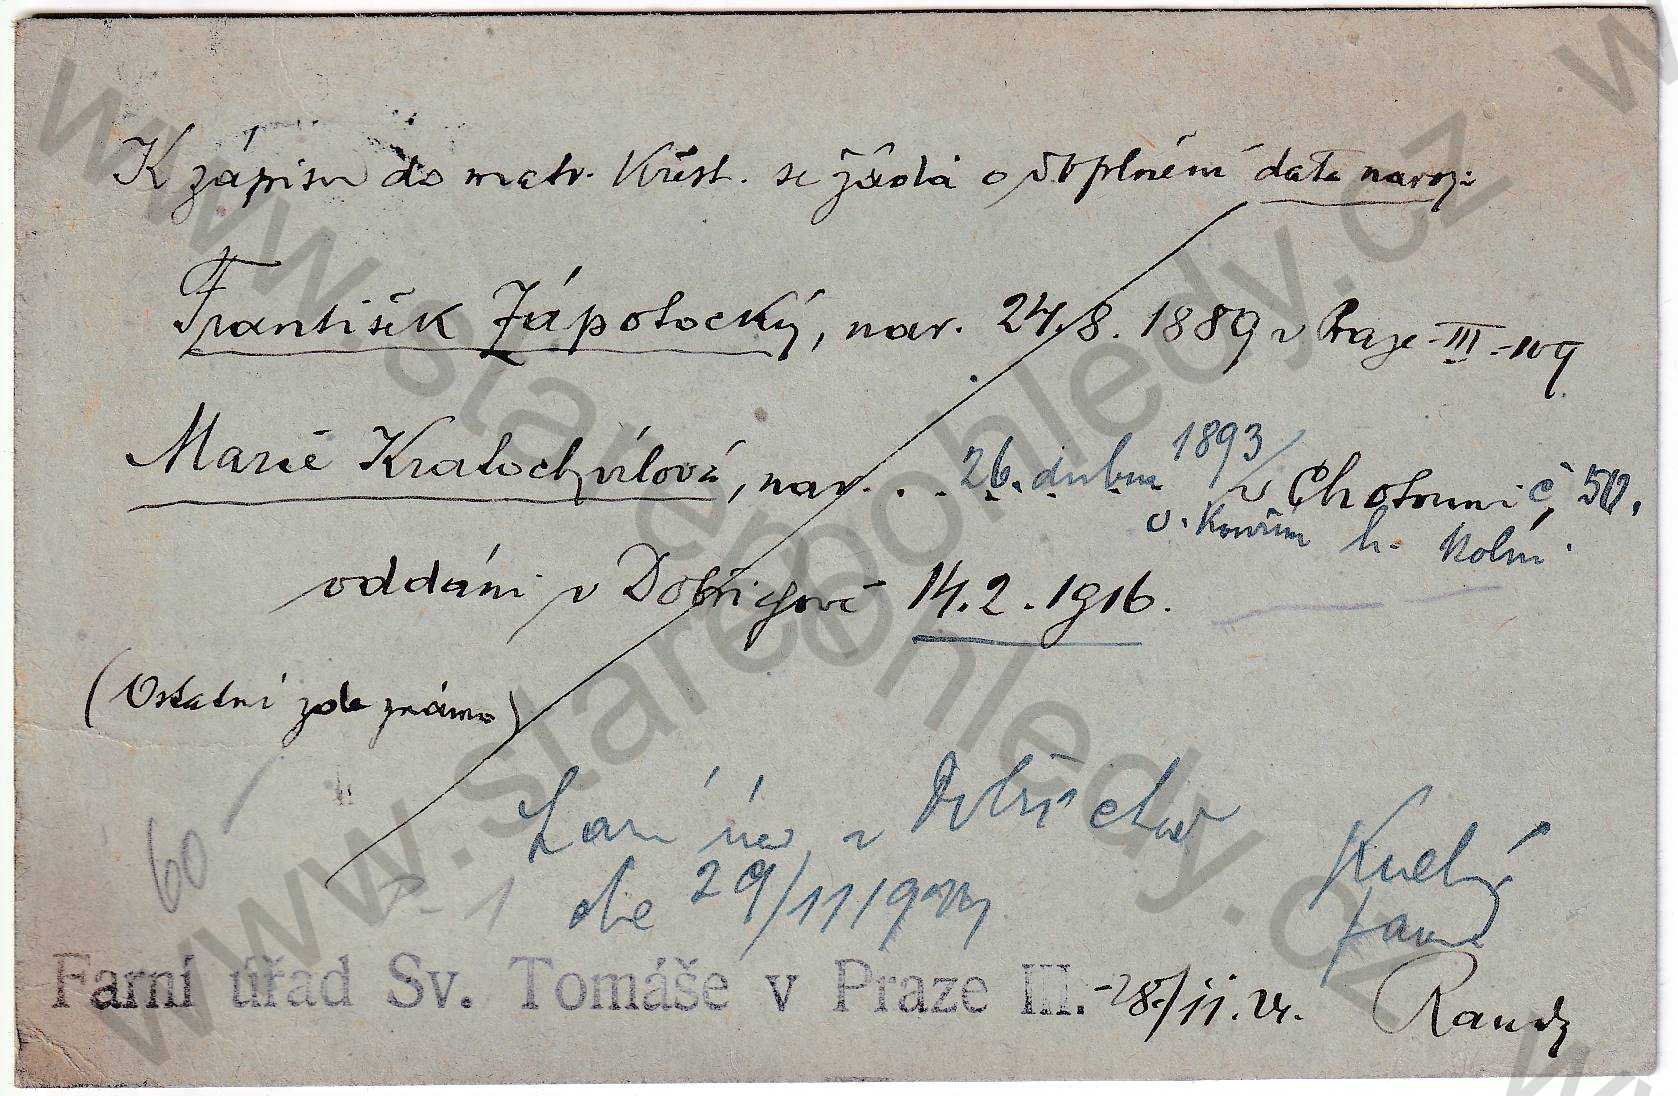 K zápisu do matr. křest. se žádá o doplnění data naroz:
František Zápotocký, nar. 24.8. 1889 v Praze-III.-109
Marie Kratochvílová, nar. . . 26. dubna 1893 v Chotouni č, 50.
o. Kouřim h. Kolín.
oddáni v Dobřichově 14.2.1916.
(Ostatní zde známo)
60
Farní úřad v Dobřichově
P-1
dne 29/11 1924
farář
Farní úřad Sv. Tomáše v Praze III. -28/11.24.
www.starepohledy.cz
www.starepohledy.cz